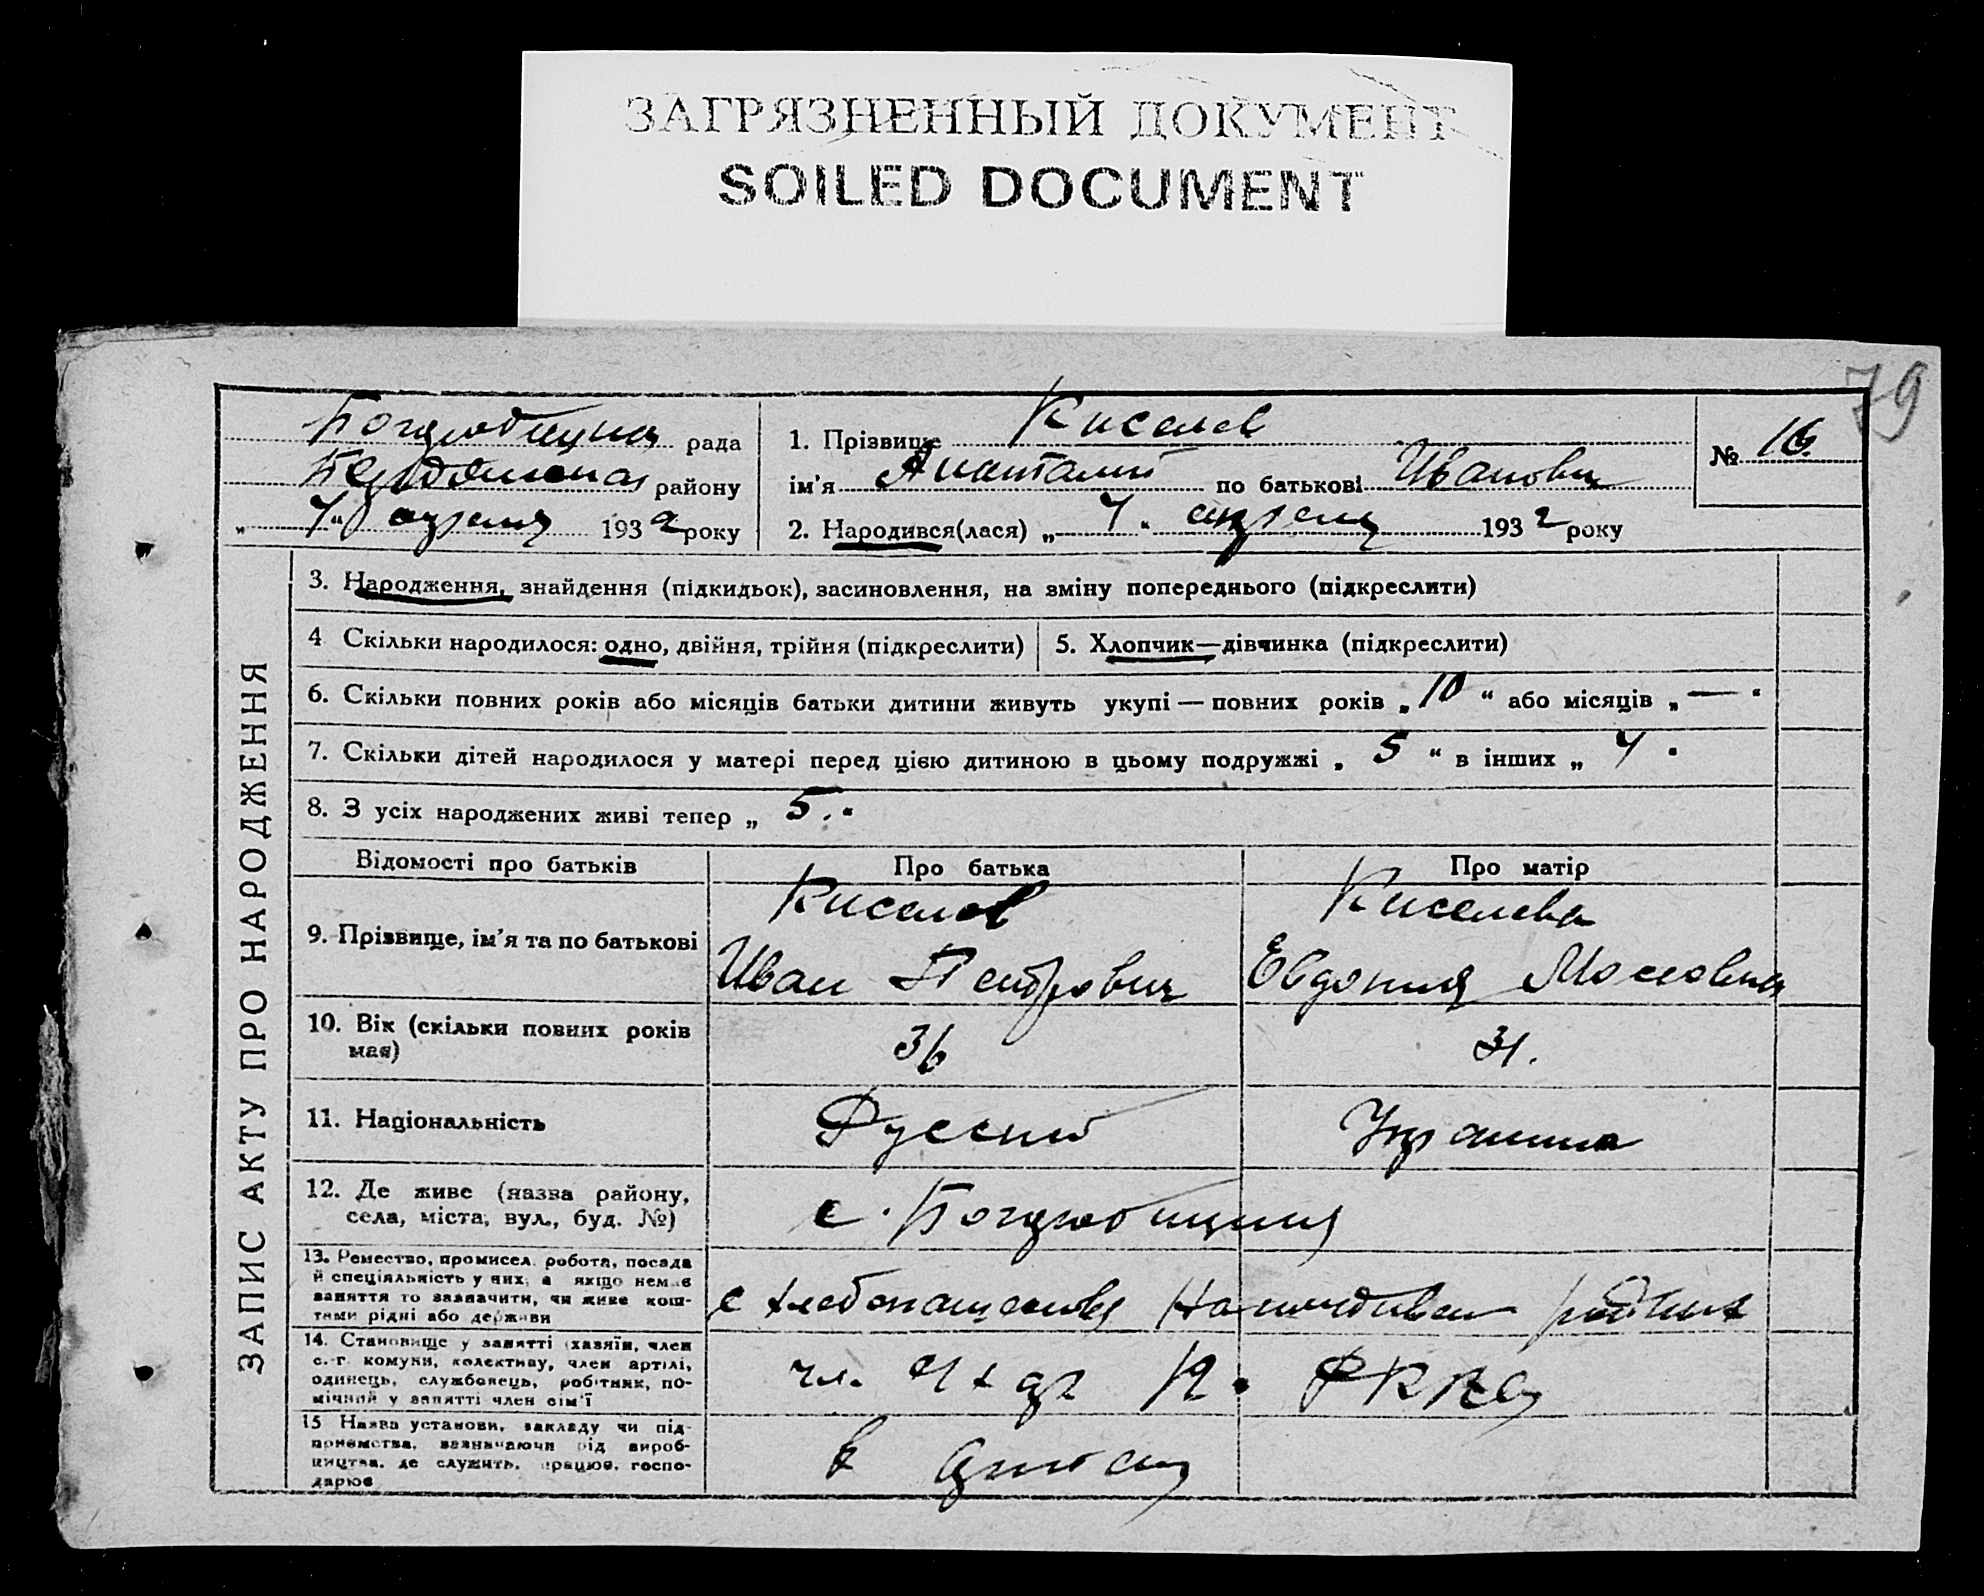 ЗАГРЯЗНЕННЫЙ ДОКУМЕНТ
SOILED DOCUMENT
79
рада
району
апреля 1932 року
1. Прізвище Киселев
ім'я Анатолий по батькові Иванович
2. Народився(лася) „ “ апреля 1932 року
№ 16
ЗАПИС АКТУ ПРО НАРОДЖЕННЯ
3. Народження, знайдення (підкидьок), засиновлення, на зміну попереднього (підкреслити)
4 Скільки народилося: одно, двійня, трійня (підкреслити)
5. Хлопчик—дівчинка (підкреслити)
6. Скільки повних років або місяців батьки дитини живуть укупі — повних років „ 10 “ або місяців „ — “
7. Скільки дітей народилося у матері перед цією дитиною в цьому подружжі „ 5 “ в інших „
8. З усіх народжених живі тепер „ 5. “
Відомості про батьків
Про батька
Про матір
9. Прізвище, ім'я та по батькові
Киселев
Иван Петрович
Киселева
Евдокия
10. Вік (скільки повних років має)
36
31.
11. Національність
Русский
12. Де живе (назва району,
села, міста, вул., буд. №)
с.
13. Ремество, промисел, робота, посада
й спеціяльність у них, а якщо немає
заняття то зазначити, чи живе кош-
тами рідні або держави
14. Становище у занятті (хазяїн, член
с.-г. комуни, колективу, член артілі,
одинець, службовець, робітник, по-
мічний у занятті член сім'ї
чл.
15 Назва установи, закладу чи під-
приємства, зазначаючи рід вироб-
ництва, де служить, працює, госпо-
дарює
в